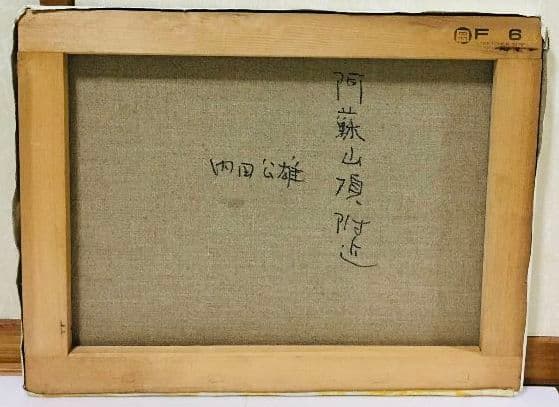 F 6
阿蘇山頂附近
内田公雄